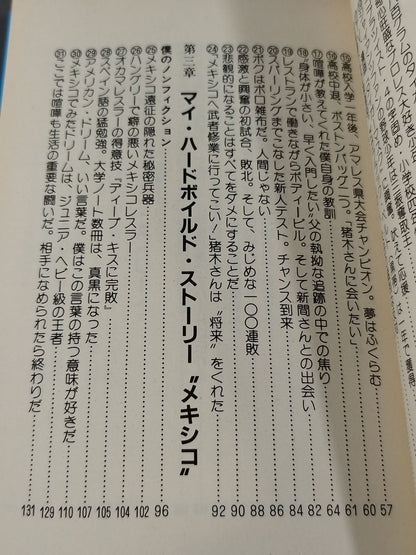 ⑮高校入学一年後、アマレス県大会チャンピオン。夢はふくらむ……57
⑯高校中退、ボストンバッグ一つ。〝猪木さんに会いたい〟……60
⑰喧嘩が教えてくれた僕自身の教訓……61
⑱〝身体が小さい、早く入門したい〟父の執拗な追跡の中での焦り……64
⑲レストランで働きながらボディービル。そして新間さんとの出会い……82
⑳スパーリングまでこなした新人テスト。チャンス到来……84
㉑ボクはボロ雑布だ。人間じゃない……86
㉒感激と興奮の初試合、敗北。そして、みじめな一〇〇連敗……88
㉓悲観的になることはすべてをダメにすることだ……90
㉔〝メキシコへ武者修業に行ってこい!〟猪木さんは〝将来〟をくれた……92
第三章 マイ・ハードボイルド・ストーリー〝メキシコ〟
僕のノンフィクション……96
㉕メキシコ遠征の隠れた秘密兵器……102
㉖ハングリーで癖の悪いメキシコレスラー……104
㉗オカマレスラーの得意技〝ディープ・キスに完敗〟……105
㉘スペイン語の猛勉強。大学ノート数冊は、真黒になった……107
㉙アメリカン・ドリーム、いい言葉だ。僕はこの言葉の持つ意味が好きだ……110
㉚メキシコでみたドリームは、ジュニア・ヘビー級の王者……129
㉛ここでは喧嘩も生活の重要な闘いだ。相手になめられたら終わりだ……131